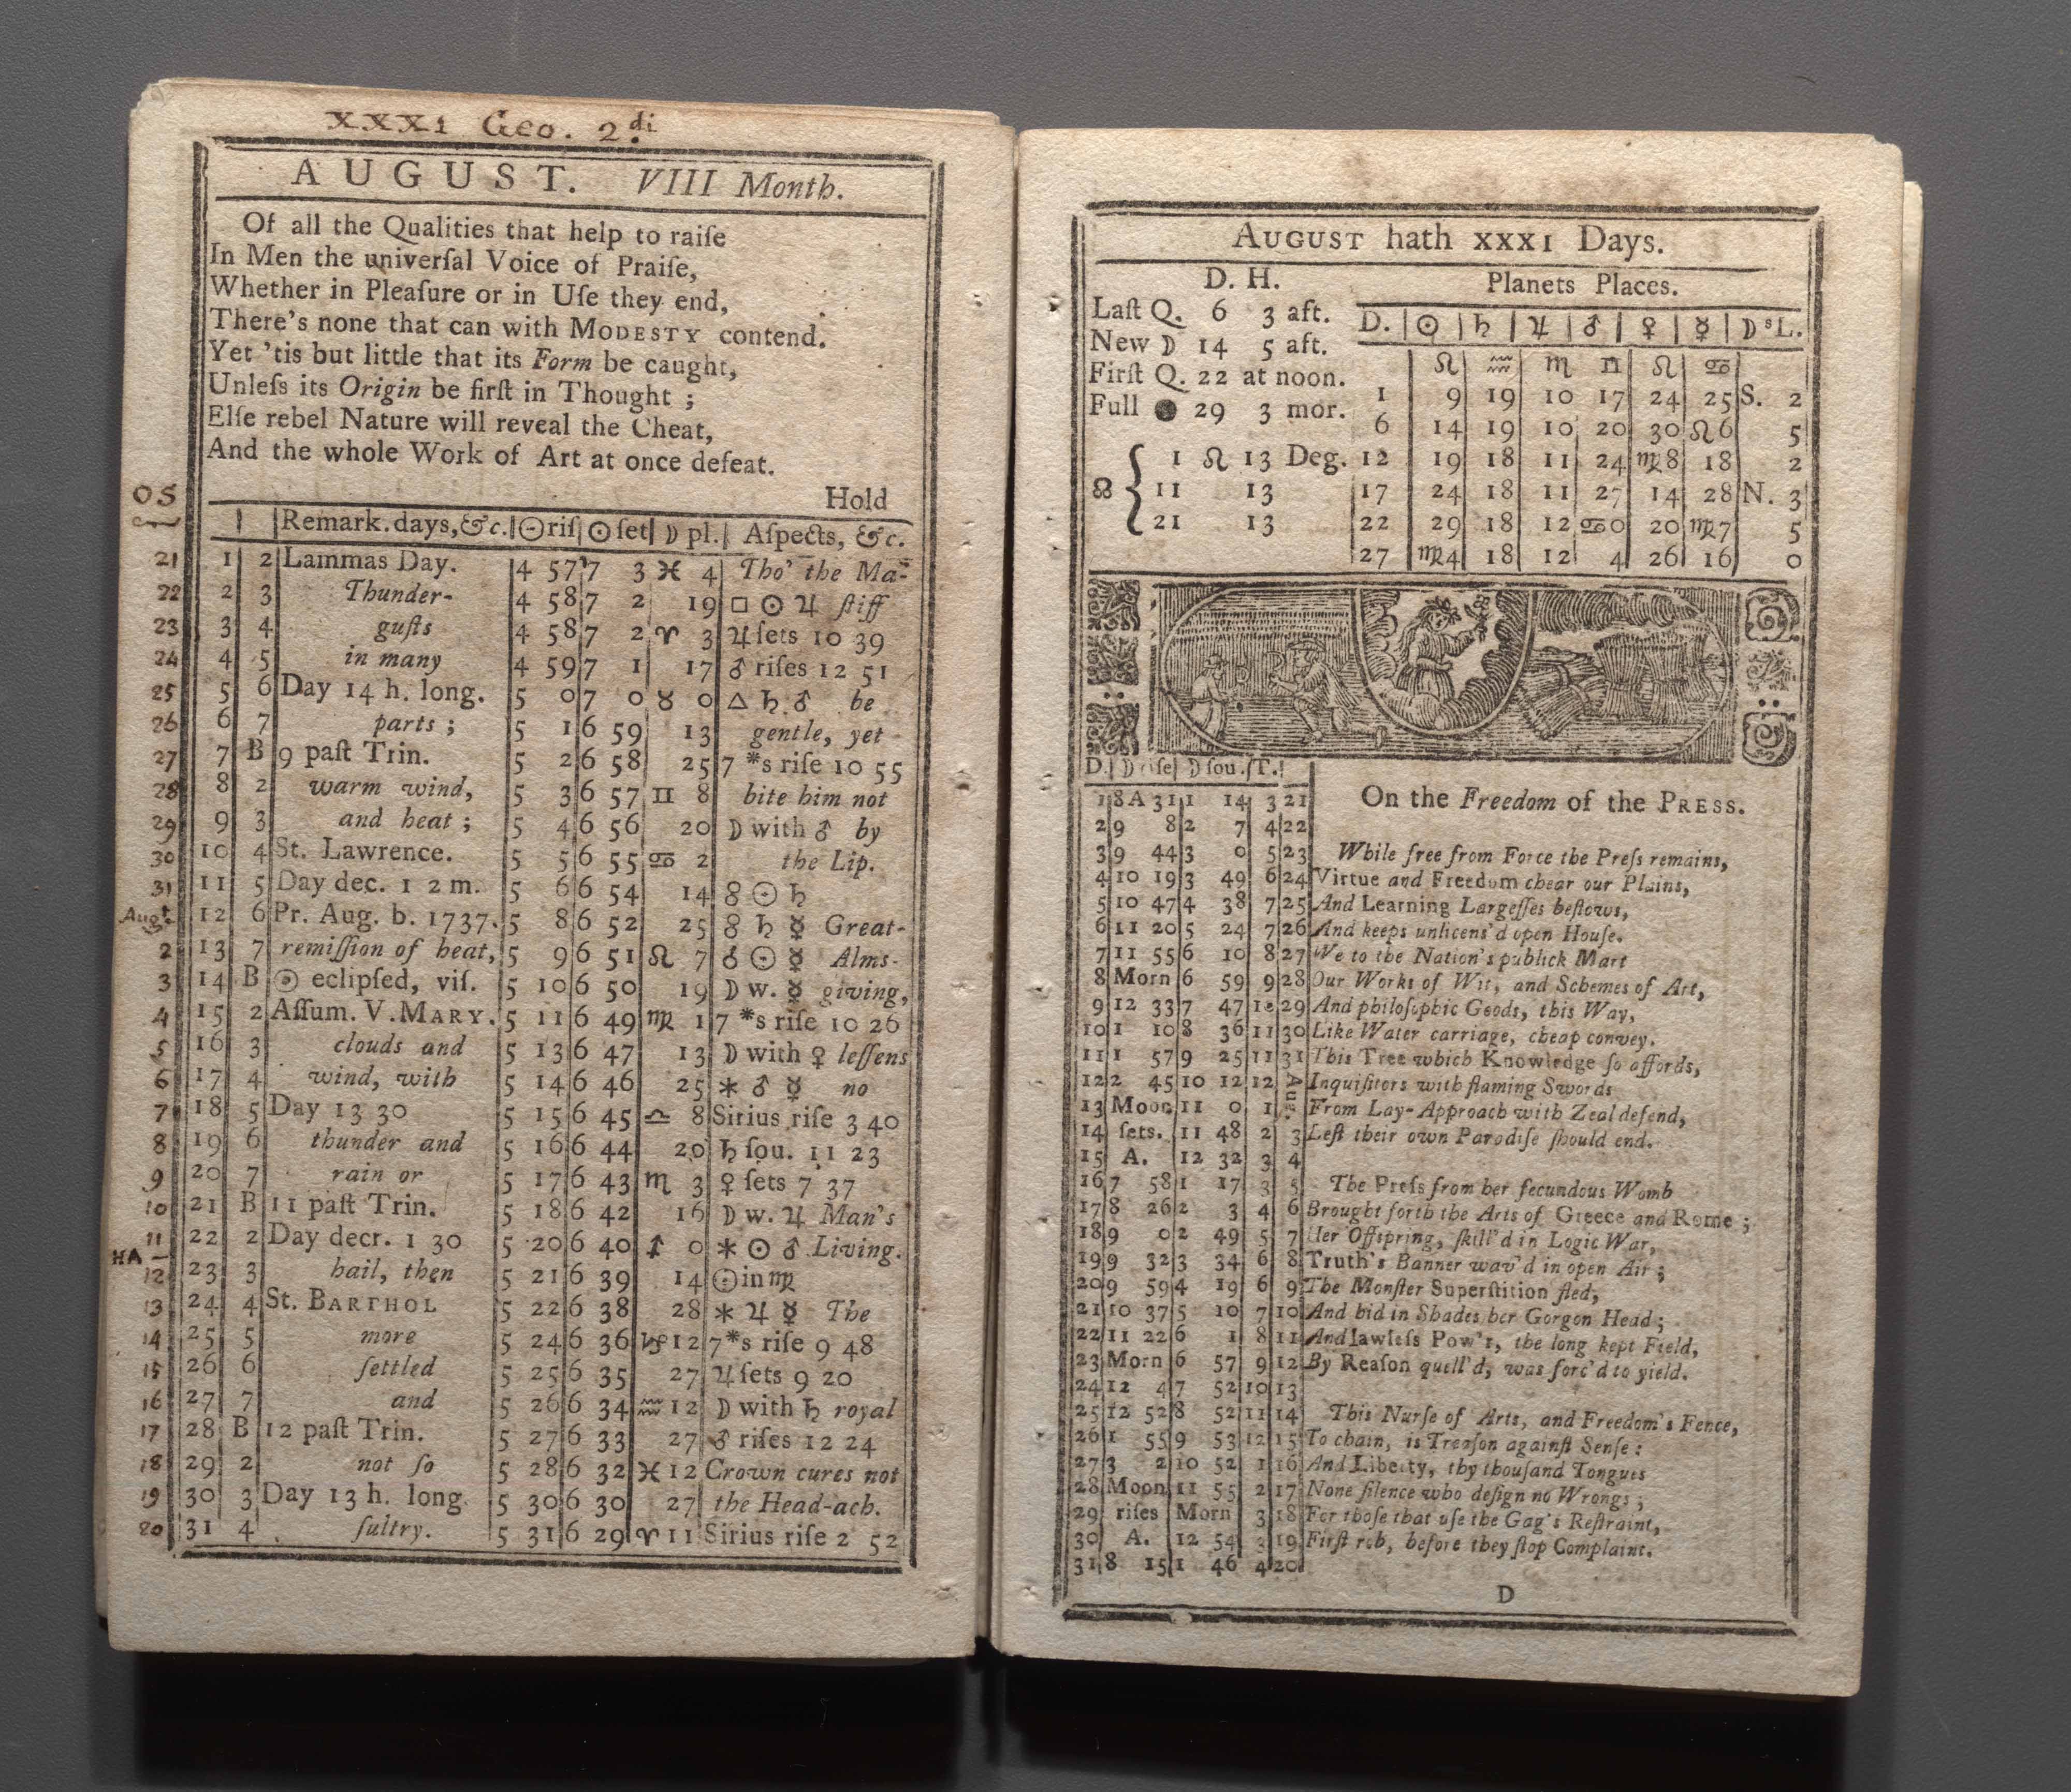 XXXI Geo. 2.di
AUGUST. VIII Month.
Of all the Qualities that help to raiſe
In Men the univerſal Voice of Praiſe,
Whether in Pleaſure or in Uſe they end,
There's none that can with MODESTY contend.
Yet 'tis but little that its Form be caught,
Unleſs its Origin be firſt in Thought ;
Elſe rebel Nature will reveal the Cheat,
And the whole Work of Art at once defeat.
Hold
OS
Remark. days, &c. ☉riſ ☉ſet ☽ pl. Aſpects, &c.
21 1 2 Lammas Day. 4 57 7 3 ♓ 4 Tho' the Ma-
22 2 3 Thunder- 4 58 7 2 19 □ ☉ ♃ ſtiff
23 3 4 guſts 4 58 7 2 ♈ 3 ♃ ſets 10 39
24 4 5 in many 4 59 7 1 17 ♂ riſes 12 51
25 5 6 Day 14 h. long. 5 0 7 0 ♉ 0 △ ♄ ♂ be
26 6 7 parts ; 5 1 6 59 13 gentle, yet
27 7 B 9 paſt Trin. 5 2 6 58 25 7 *s riſe 10 55
28 8 2 warm wind, 5 3 6 57 ♊ 8 bite him not
29 9 3 and heat ; 5 4 6 56 20 ☽ with ♂ by
30 10 4 St. Lawrence. 5 5 6 55 ♋ 2 the Lip.
31 11 5 Day dec. 1 2 m. 5 6 6 54 14 ☍ ☉ ♄
Augt. 12 6 Pr. Aug. b. 1737. 5 8 6 52 25 ☍ ♄ ☿ Great-
2 13 7 remiſſion of heat, 5 9 6 51 ♌ 7 ☌ ☉ ☿ Alms-
3 14 B ☉ eclipſed, viſ. 5 10 6 50 19 ☽ w. ☿ giving,
4 15 2 Aſſum. V. MARY. 5 11 6 49 ♍ 1 7 *s riſe 10 26
5 16 3 clouds and 5 13 6 47 13 ☽ with ♀ leſſens
6 17 4 wind, with 5 14 6 46 25 ⚹ ♂ ☿ no
7 18 5 Day 13 30 5 15 6 45 ♎ 8 Sirius riſe 3 40
8 19 6 thunder and 5 16 6 44 20 ♄ ſou. 11 23
9 20 7 rain or 5 17 6 43 ♏ 3 ♀ ſets 7 37
10 21 B 11 paſt Trin. 5 18 6 42 16 ☽ w. ♃ Man's
11 22 2 Day decr. 1 30 5 20 6 40 ♐ 0 ⚹ ☉ ♂ Living.
HA
12 23 3 hail, then 5 21 6 39 14 ☉ in ♍
13 24 4 St. BARTHOL 5 22 6 38 28 ⚹ ♃ ☿ The
14 25 5 more 5 24 6 36 ♑ 12 7 *s riſe 9 48
15 26 6 ſettled 5 25 6 35 27 ♃ ſets 9 20
16 27 7 and 5 26 6 34 ♒ 12 ☽ with ♄ royal
17 28 B 12 paſt Trin. 5 27 6 33 27 ♂ riſes 12 24
18 29 2 not ſo 5 28 6 32 ♓ 12 Crown cures not
19 30 3 Day 13 h. long 5 30 6 30 27 the Head-ach.
20 31 4 ſultry. 5 31 6 29 ♈ 11 Sirius riſe 2 52
AUGUST hath XXXI Days.
D. H.
Laſt Q. 6 3 aft.
New ☽ 14 5 aft.
Firſt Q. 22 at noon.
Full ● 29 3 mor.
☊ { 1 ♌ 13 Deg.
11 13
21 13
Planets Places.
D. ☉ ♄ ♃ ♂ ♀ ☿ ☽sL.
♌ ♒ ♏ ♊ ♌ ♋
1 9 19 10 17 24 25 S. 2
6 14 19 10 20 30 ♌6 5
12 19 18 11 24 ♍8 18 2
17 24 18 11 27 14 28 N. 3
22 29 18 12 ♋0 20 ♍7 5
27 ♍4 18 12 4 26 16 0
D. ☽ riſe ☽ ſou. T.
1 8 A 31 1 14 3 21
2 9 8 2 7 4 22
3 9 44 3 0 5 23
4 10 19 3 49 6 24
5 10 47 4 38 7 25
6 11 20 5 24 7 26
7 11 55 6 10 8 27
8 Morn 6 59 9 28
9 12 33 7 47 10 29
10 1 10 8 36 11 30
11 1 57 9 25 11 31
12 2 45 10 12 12 Aug.
13 Moon 11 0 1
14 ſets. 11 48 2 3
15 A. 12 32 3 4
16 7 58 1 17 3 5
17 8 26 2 3 4 6
18 9 0 2 49 5 7
19 9 32 3 34 6 8
20 9 59 4 19 6 9
21 10 37 5 10 7 10
22 11 22 6 1 8 11
23 Morn 6 57 9 12
24 12 4 7 52 10 13
25 12 52 8 52 11 14
26 1 55 9 53 12 15
27 3 2 10 52 1 16
28 Moon 11 55 2 17
29 riſes Morn 3 18
30 A. 12 54 3 19
31 8 15 1 46 4 20
On the Freedom of the PRESS.
While free from Force the Preſs remains,
Virtue and Freedom chear our Plains,
And Learning Largeſſes beſtows,
And keeps unlicens'd open Houſe.
We to the Nation's publick Mart
Our Works of Wit, and Schemes of Art,
And philoſophic Goods, this Way,
Like Water carriage, cheap convey.
This Tree which Knowledge ſo affords,
Inquiſitors with flaming Swords
From Lay-Approach with Zeal defend,
Leſt their own Paradiſe ſhould end.
The Preſs from her fecundous Womb
Brought forth the Arts of Greece and Rome ;
Her Offspring, ſkill'd in Logic War,
Truth's Banner wav'd in open Air ;
The Monſter Superſtition fled,
And hid in Shades her Gorgon Head ;
And lawleſs Pow'r, the long kept Field,
By Reaſon quell'd, was forc'd to yield.
This Nurſe of Arts, and Freedom's Fence,
To chain, is Treaſon againſt Senſe :
And Liberty, thy thouſand Tongues
None ſilence who deſign no Wrongs ;
For thoſe that uſe the Gag's Reſtraint,
Firſt rob, before they ſtop Complaint.
D